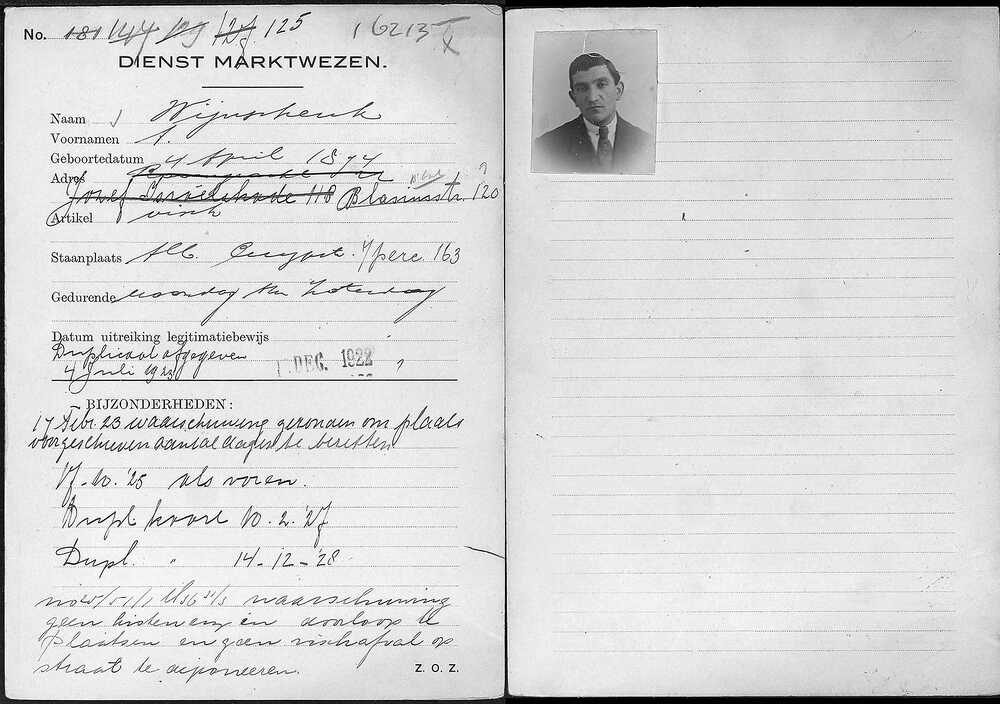 No. 181 144 129 127 125 16213
DIENST MARKTWEZEN.
Naam Wijnschenk
Voornamen A.
Geboortedatum 4 April 1874
Adres
Jozef Israelskade 118 Blasiusstr. 120
Artikel visch
Staanplaats Alb. Cuypstr. t/perc. 163
Gedurende Maandag t/m Zaterdag
Datum uitreiking legitimatiebewijs
Duplicaat afgegeven
4 Juli 1923 DEC. 1922
BIJZONDERHEDEN:
17 Febr. 23 waarschuwing gezonden om plaats
voorgeschreven aantal dagen te bezetten
als voren.
Dupl. kaart 10.2.'27
Dupl. " 14-12-'28
waarschuwing
geen kisten enz in doorloop te
plaatsen en geen vischafval op
straat te deponeeren.
Z. O. Z.